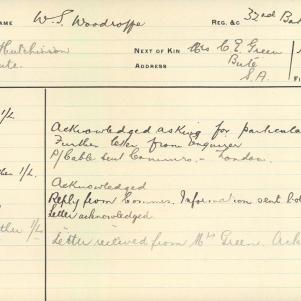 NAME W. S. Woodroffe REG. &C 32nd Bat
Hutchinson NEXT OF KIN Mrs C. E. Green
Bute. ADDRESS Bute
S.A.
1/L Acknowledged asking for particula
Further letter from enquirer
P/Cable sent Commrs. - London.
her 1/L Acknowledged
Reply from Commrs. Information sent bot
Letter acknowledged.
ther 1/L Letter received from Mrs Green. Ack